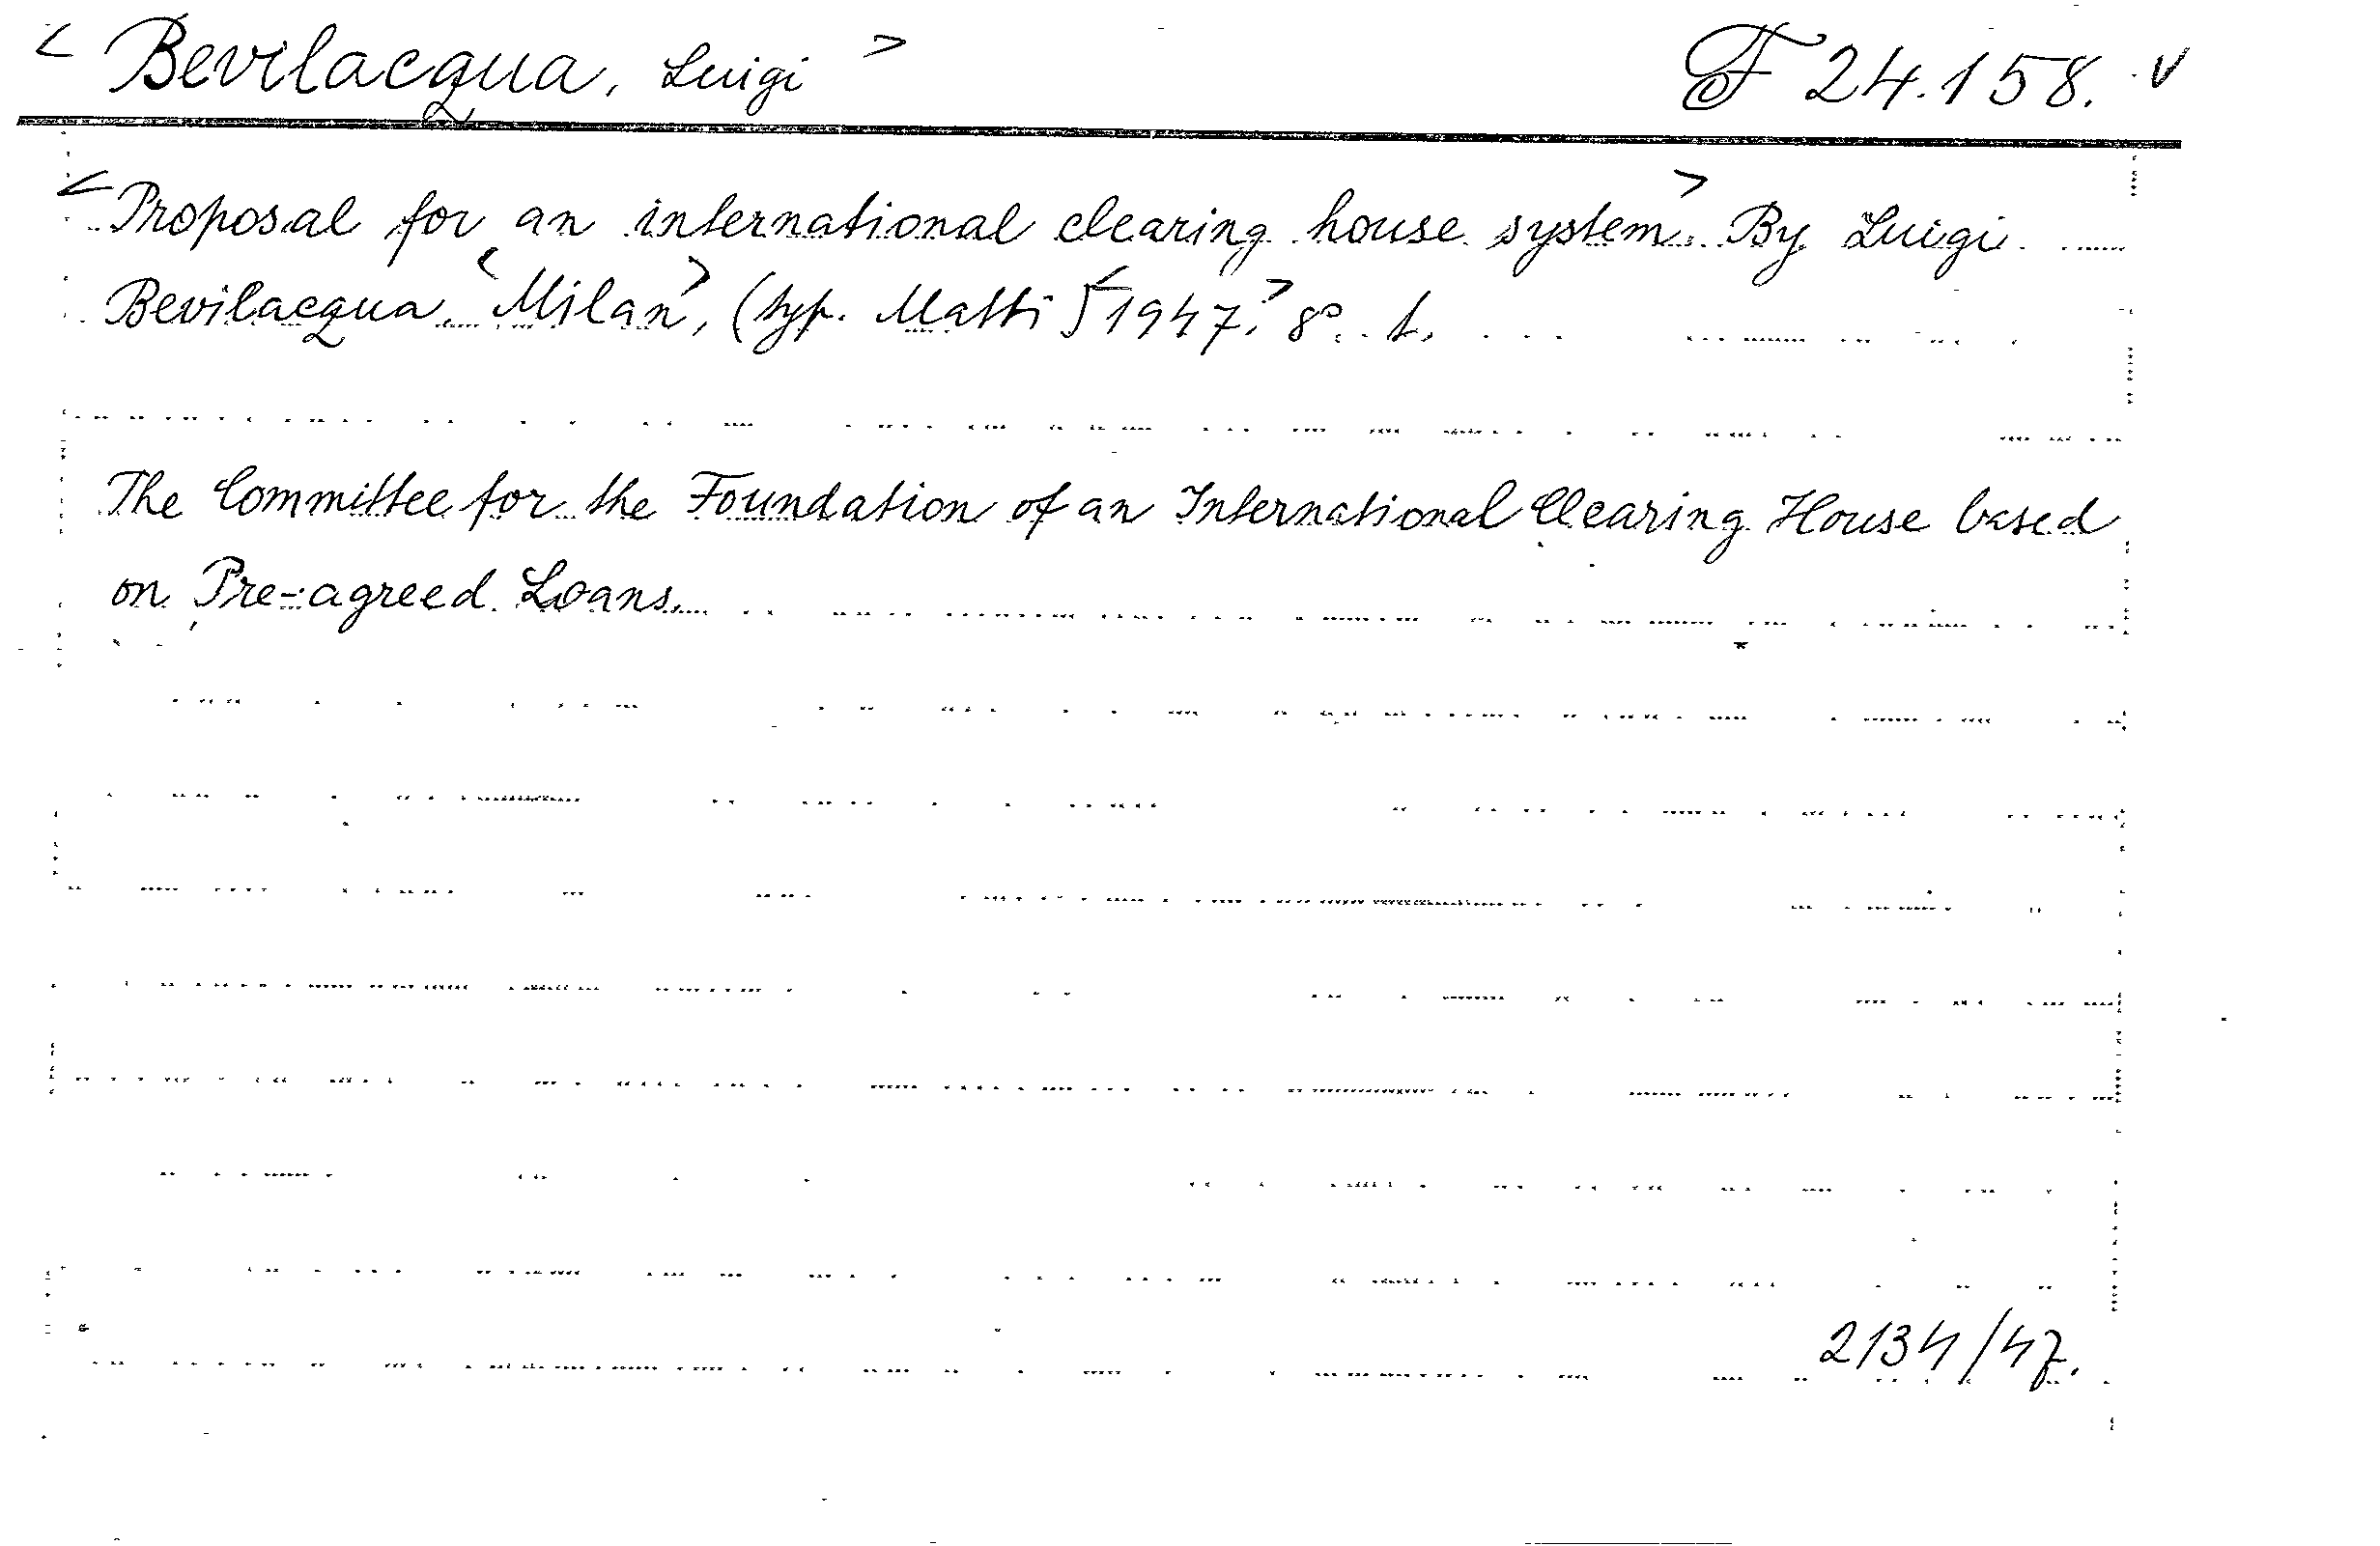 < Bevilacqua, Luigi > F 24.158. v
<Proposal for an international clearing house system.> By Luigi
Bevilacqua. <Milan>, (typ. Matti) <1947.> 8°. t.
The Committee for the Foundation of an International Clearing House based
on Pre-agreed Loans.
2134/47.